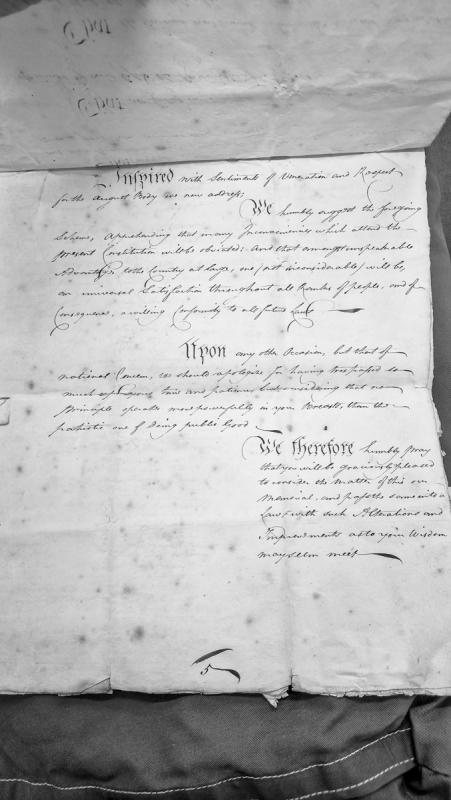 Inspired with Sentiments of Veneration and Respect
for the August Body we now address;
We humbly suggest the foregoing
Scheme, apprehending that many Inconveniencies which attend the
present Constitution will be obviated: And that amongst unspeakable
Advantages to the Country at large, one (not inconsiderable) will be,
an universal Satisfaction throughout all Ranks of people, and of
Consequence, a willing Conformity to all future Laws
Upon any other Occasion, but that of
national Concern, we should apologize for having trespassed so
much upon your time and patience, but considering that no
Principle operates more powerfully in your Breasts, than the
patriotic one of doing public Good
We therefore humbly pray
that you will be graciously pleased
to consider the Matter of this our
Memorial, and pass the same into a
Law, with such Alterations and
Improvements as to your Wisdom
may seem meet
5